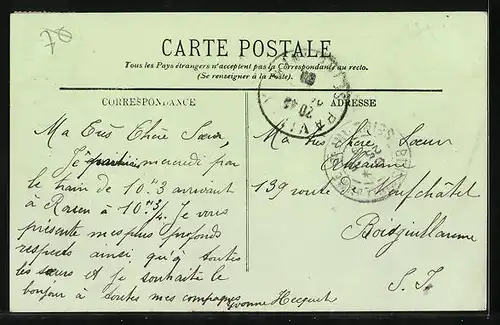 CARTE POSTALE
Tous les Pays étrangers n'acceptent pas la Correspondance au recto.
(Se renseigner à la Poste).
CORRESPONDANCE
ADRESSE
Ma Très Chère Sœur,
Je mercredi par
le train de 10.h 3 arrivant
à Rouen à 10.h 3/4 Je vous
présente mes plus profonds
respects ainsi qu'à toutes
les sœurs et je souhaite le
bonjour à toutes mes compagnes
Yvonne Hecquet
Ma très chère Sœur
139 route Neufchâtel
Boisguillaume
S. I.